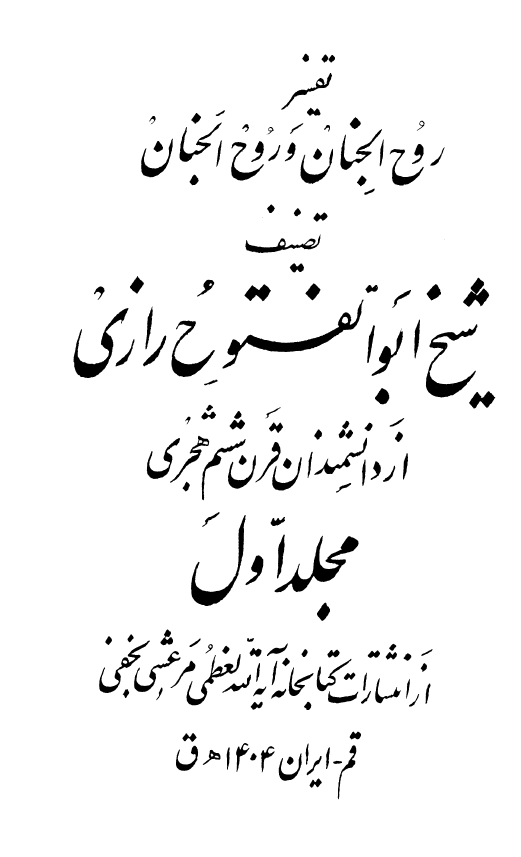 تفسیر
رُوْحُ الْجِنانْ وَرُوْحْ الْجَنانْ
تصنیف
شیخ اَبوالفتوُحِ رازیْ
اَز دانشمِندان قَرن ششم هْجری
مجلد اوّلَ
اَز انتشارات کتابخانه آیة اللّه العظمُی مَرعَشیِ نجفی
قم - ایران ۱۴۰۴ ه ق